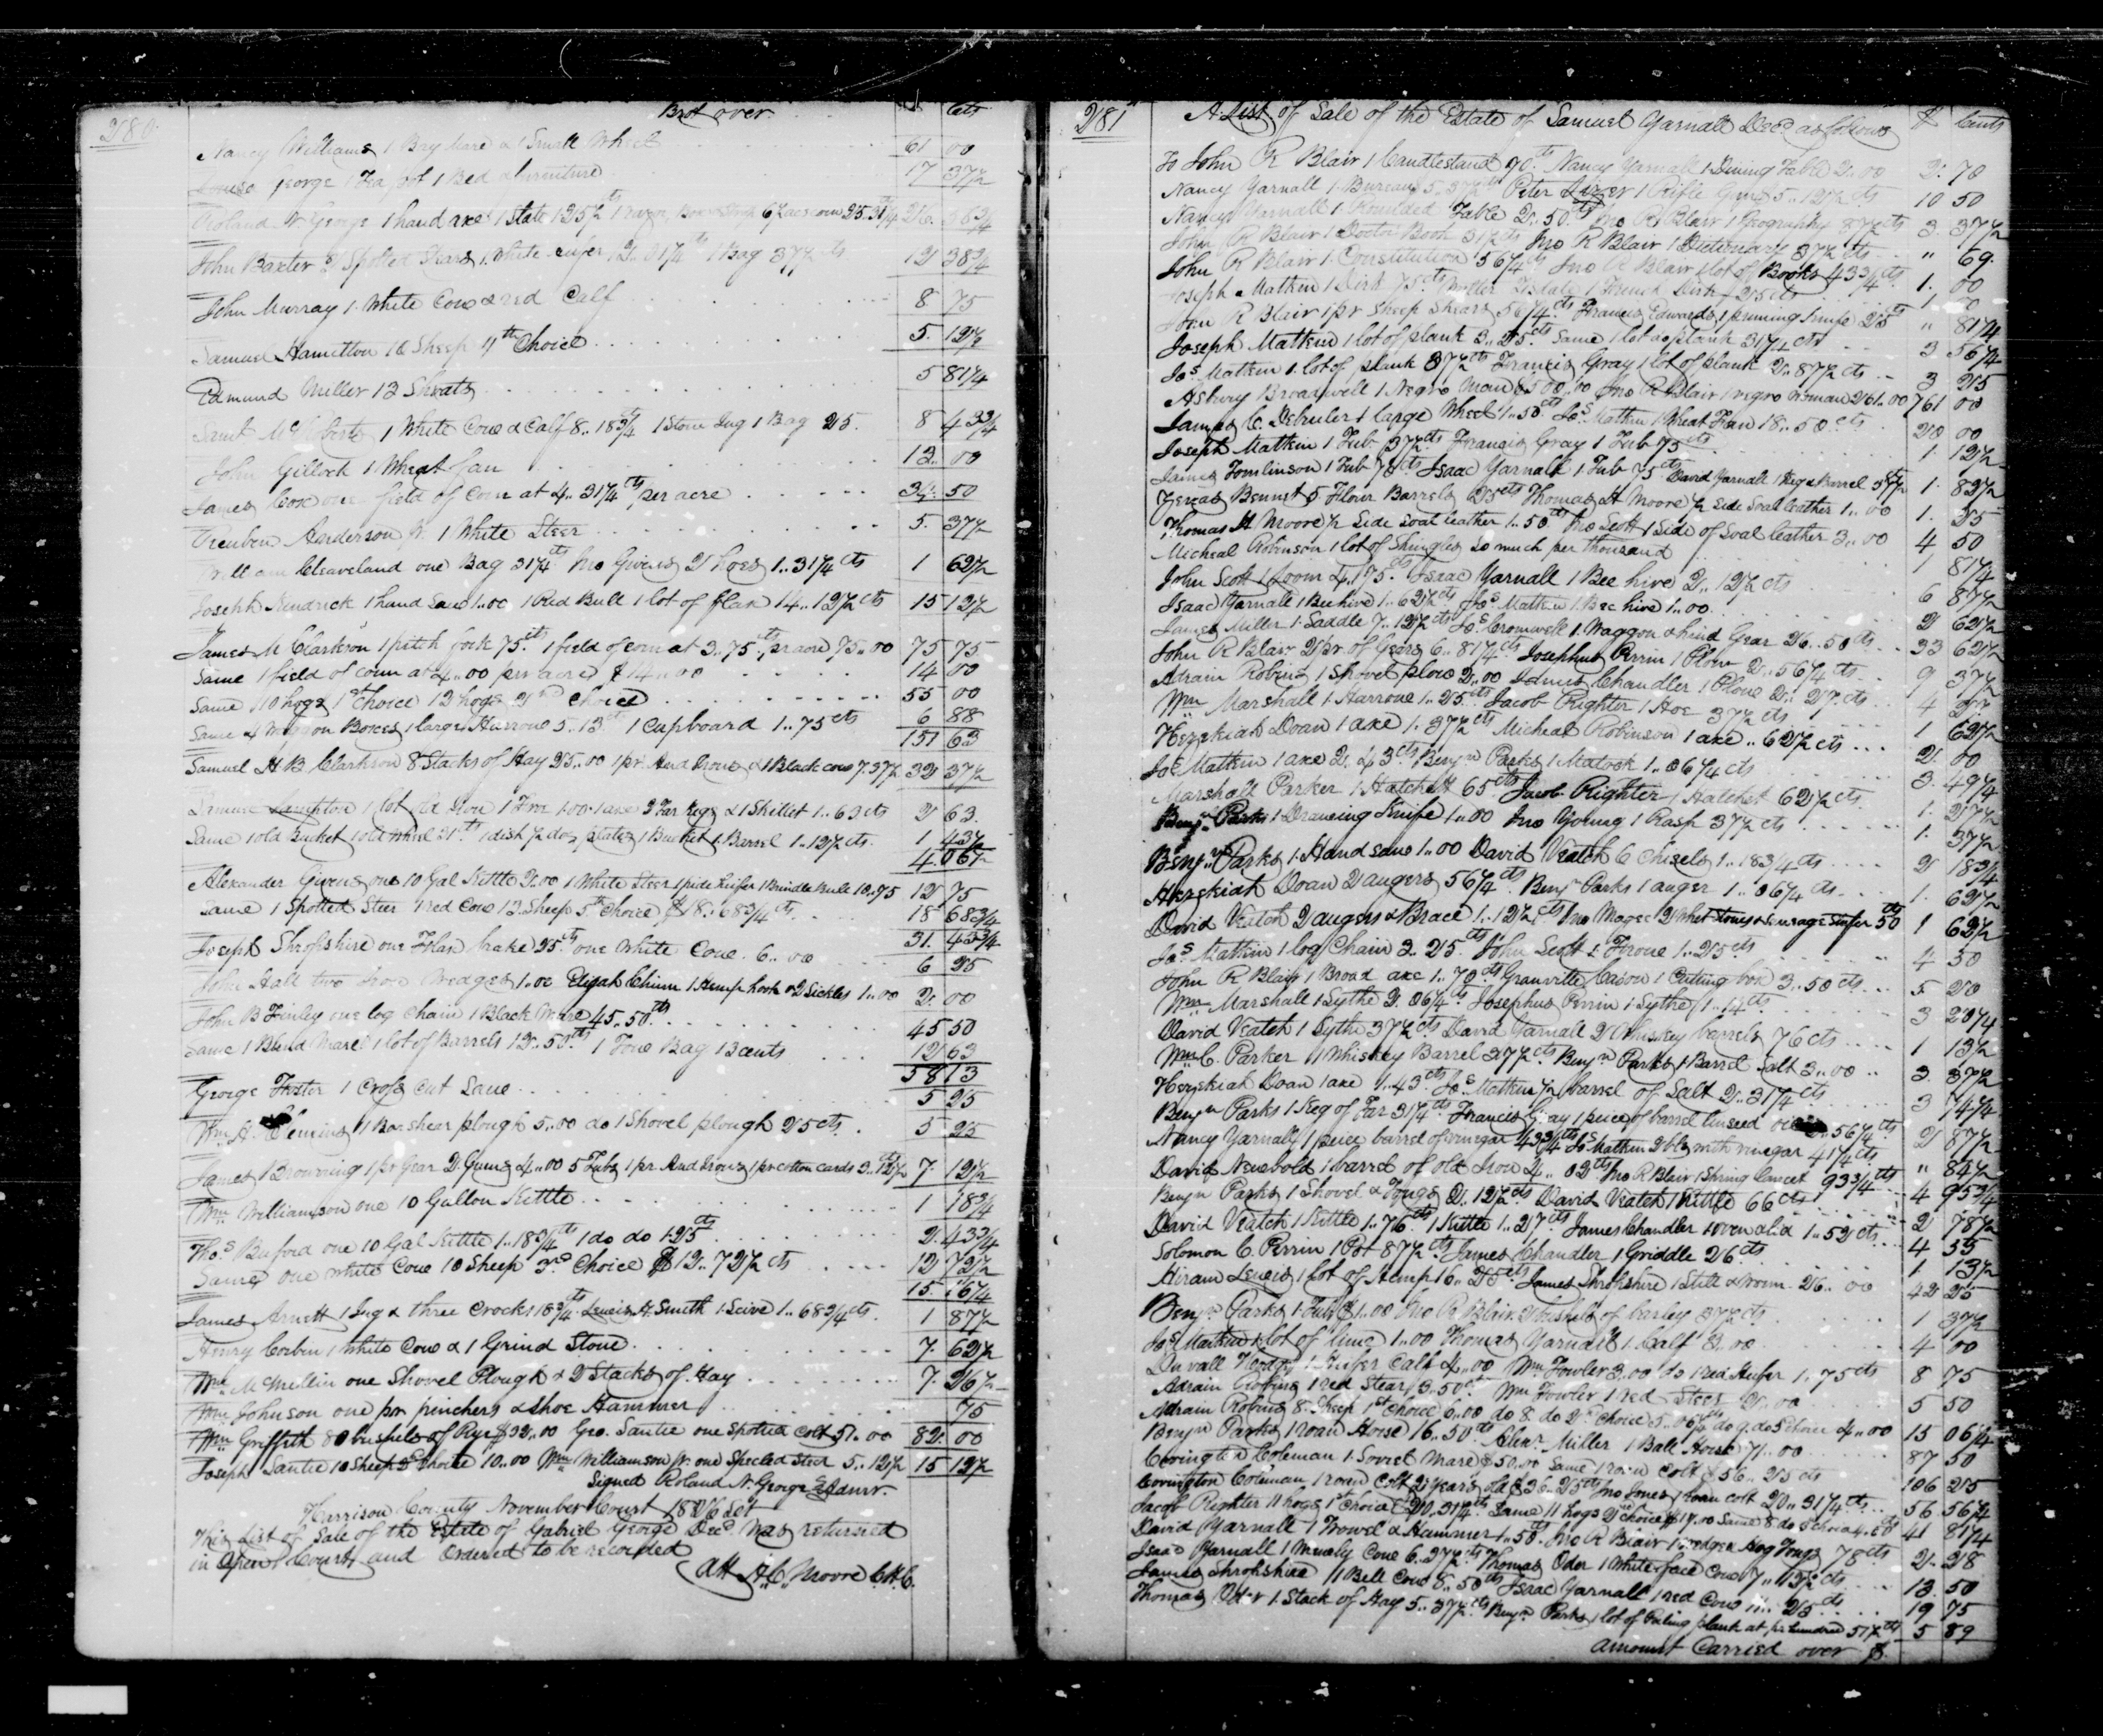 280
Brot over $ Cts
Nancy Williams 1 Bay Mare & 1 Small Wheel 61 00
George 1 Tea pot 1 Bed & furniture 17 37½
Roland N George 1 hand axe 1 Slate 1.25½ cts 1 razor, Box & Strop
John Baxter 2 Spotted Shoars 1 White heifer 12..01¼ cts 1 Bag 37½ cts 12 38¾
John Murray 1 White Cow & red Calf 8 75
Samuel Hamilton 10 Sheep 4th Choice 5. 12½
Edmund Miller 13 Shoats 5 81¼
Saml McRoberts 1 White Cow & Calf 8..18¾ cts 1 Stone Jug 1 Bag 25. 8 43¾
John Gillock 1 Wheat fan 12. 00
James Cox one field of Corn at 4..31¼ cts per acre 34. 50
Reuben Anderson Jr. 1 White Steer 5. 37½
William Cleaveland one Bag 31¼ cts Jno Givens 2 hoes 1..31¼ cts 1 62½
Joseph Kendrick 1 hand Saw 1..00 1 Red Bull 1 lot of flax 14..12½ cts 15 12½
James M Clarkson 1 pitch fork 75 cts. 1 field of corn at 3..75 cts pr acre 75..00 75 75
Same 1 field of corn at 4..00 per acre $14..00 14 00
Same 10 hogs 1st Choice 12 hogs 2nd Choice 55 00
Same 4 Waggon Boxes 1 large Harrow 5..13 cts 1 Cupboard 1..75 cts 6 88
151 63
Samuel H B Clarkson 8 Stacks of Hay 25..00 1 pr. And Irons & 1 Black cow 7.37½ 32 37½
Lampton 1 lot old Iron 1 Froe 1.00 1 axe 3 Tar Kegs & 1 Skillet 1..63 cts 2 63.
Same 1 old Bucket 1 old wheel 31 cts 1 dish ½ doz plates 1 Bucket 1 Barrel 1..12½ cts. 1 43½
4.06½
Alexander Givens one 10 Gal Kettle 2.00 1 White Steer 1 pide heifer 1 Brindle Bull 10..75 12 75
Same 1 Spotted Steer 1 red Cow 13 Sheep 5th Choice $18..68¾ cts 18 68¾
31. 43¾
Joseph Shropshire one Flax brake 25 cts. one White Cow. 6..00 6 25
John Hall two Iron Wedges 1..00 Elijah Chinn 1 Hemp hook & 2 Sickles 1..00 2. 00
John B Finley one log Chain 1 Black Mare 45..50 cts 45 50
Same 1 Blind Mare 1 lot of Barrels 12..50 cts. 1 Tow Bag 13 cents 12 63
58 13
George Foster 1 Cross Cut Saw 5 25
Wm. H. 1 Barshear plough 5..00 do 1 Shovel plough 25 cts. 5 25
James Browning 1 pr Gear 2 Guns 4..00 5 Tubs 1 pr. And Irons 1 pr cotton cards 3..12½ cts 7. 12½
Wm Williamson one 10 Gallon Kettle 1 18¾
Thos. Buford one 10 Gal Kettle 1..18¾ cts 1 do do 1.25 cts 2. 43¾
Same one White Cow 10 Sheep 3rd Choice $12..72½ cts 12 72½
15. 16¼
James Arnett 1 Jug & three Crocks 18¾ cts. Lewis H. Smith 1 Seive 1..68¾ cts. 1 87½
Henry Corbin 1 White Cow & 1 Grind Stone 7. 62½
Wm. McMillin one Shovel Plough & 2 Stacks of Hay 7. 26½
Wm Johnson one pr pinchers & Shoe Hammer 75
Wm Griffith 80 bushels of Rye $32..00 Geo. Santie one Spotted Colt 51..00 82. 00
Joseph Santie 10 Sheep 2d Choice 10..00 Wm Williamson Jr one Specled Steer 5..12½ 15 12½
Signed Roland N. George Admr.
Harrison County November Court 1826 Sct
This List of Sale of the Estate of Gabriel George Decd. Was returned
in Open Court and Ordered to be recorded
Att H. C. Moore C.H.C.
281
A List of Sale of the Estate of Samuel Yarnall Decd as follows $ Cents
To John R Blair 1 Candlestand 70 cts Nancy Yarnall 1 Dining Table 2..00 2. 70
Nancy Yarnall 1 Bureau 5..37½ cts Peter 1 Rifle Gun 5..12½ cts 10 50
Nancy Yarnall 1 Table 2..50 cts Jno R Blair 1 Geography 87½ cts 3. 37½
John R Blair 1 Doctor Book 31½ cts Jno R Blair 1 Dictionary 37½ cts " 69.
John R Blair 1 Constitution 56¼ cts Jno R Blair 1 lot of Books 43¾ cts 1. 00
Joseph Matkin 1 75 cts 25 cts 1 00
John R Blair 1 pr Sheep Shears 56¼ cts Francis Edwards 1 pruning knife 25 cts " 81¼
Joseph Matkin 1 lot of plank 3..25 cts Same 1 lot do plank 31¼ cts 3 56¼
Jos. Matkin 1 lot of plank 37½ cts Francis Gray 1 lot of plank 2..87½ cts 3 25
Asbury Broadwell 1 Negro Man $500.00 Jno R Blair 1 negro Woman 261..00 761 00
James C. Debruler 1 large Wheel 1..50 cts. Jos. Matkin 1 Wheat Fan 18..50 cts 20 00
Joseph Matkin 1 Tub 37½ cts Francis Gray 1 Tub 75 cts 1. 12½
James Tomlinson 1 Tub 70 cts Isaac Yarnall 1 Tub 75 cts David Yarnall 1 Keg & Barrel 1. 82½
Bennet 5 Flour Barrels 25 cts Thomas H Moore ½ Side Soal leather 1..00 1. 25
Thomas H Moore ½ Side Soal leather 1..50 cts Jno Scott 1 Side of Soal leather 3..00 4 50
Micheal Robinson 1 lot of Shingles so much per thousand 1 81¼
John Scott 1 Loom 4..75 cts. Isaac Yarnall 1 Bee hive 2..12½ cts 6 87½
Isaac Yarnall 1 Bee hive 1..62½ cts Jos. Matkin 1 Bee hive 1..00 2 62½
James Miller 1 Saddle 7..12½ cts Jos. Cromwell 1 Waggon & hind Gear 26..50 cts 33 62½
John R Blair 2 pr. of Gears 6..81¼ cts Josephus Perrin 1 Plow 2..56¼ cts 9 37½
Adrain Robins 1 Shovel plow 2..00 James Chandler 1 Plow 2..27 cts 4 27
Wm. Marshall 1 Harrow 1..25 cts Jacob Righter 1 Hoe 37½ cts 1 62½
Hezekiah Doan 1 axe 1..37½ cts Micheal Robinson 1 axe ..62½ cts 2. 00
Jos. Matkin 1 axe 2..43 cts Benjn Parks 1 Matock 1..06¼ cts 3. 49¼
Marshall Parker 1 Hatchett 65 cts Jacob Righter 1 Hatchet 62½ cts. 1. 27½
Benjn Parks 1 Drawing Knife 1..00 Jno Young 1 Rasp 37½ cts 1. 37½
Benjn Parks 1 Hand saw 1..00 David Veatch 6 Chisels 1..18¾ cts 2 18¾
Hezekiah Doan 2 augers 56¼ cts. Benjn Parks 1 auger 1..06¼ cts 1. 62½
David Veatch 2 augers & Brace 1..12½ cts Jno Magee 2 Whet Stones & Sausage Stuffer 50 cts 1 62½
Jos. Matkin 1 log Chain 3..25 cts. John Scott 1 Froe 1..25 cts 4 50
John R Blair 1 Broad axe 1..70 cts Granville Cason 1 Cutting box 3..50 cts 5 20
Wm Marshall 1 Sythe 2..06¼ cts Josephus Perrin 1 Sythe 1..14 cts 3 20¼
David Veatch 1 Sythe 37½ cts David Yarnall 2 Whiskey barrels 76 cts 1 13½
Wm C. Parker 1 Whiskey Barrel 37½ cts Benjn Parks 1 Barrel Salt 3..00 3. 37½
Hezekiah Doan 1 axe 1..43 cts Jos. Matkin ½ barrel of Salt 2..31¼ cts 3 74¼
Benjn Parks 1 Keg of Tar 31¼ cts Francis Gray 1 peice of barrel linseed oil 2..56¼ cts. 2 87½
Nancy Yarnall 1 peice barrel of vinegar 43¾ cts Jos. Matkin 2 bls with vinegar 41¼ cts " 84½
David Newbold 1 barrel of old Iron 4..02 cts Jno R Blair 1 Spring Lancet 93¾ cts 4 95¾
Benjn Parks 1 Shovel & Tongs 2..12½ cts David Veatch 1 Kettle 66 cts 2 78½
David Veatch 1 Kettle 1..76 cts. 1 Kettle 1..27 cts James Chandler 1 oven & lid 1..52 cts 4 55
Solomon C. Perrin 1 Pot 87½ cts. James Chandler 1 Griddle 26 cts. 1 13½
Hiram Lewis 1 lot of Hemp 16..25 cts James Shropshire 1 Still & worm 26..00 42 25
Benjn Parks 1 Tub $1..00 Jno R Blair 2 bushels of barley 37½ cts 1 37½
Jos Matkin 1 lot of lime 1..00 Thomas Yarnall 1 Calf 3..00 4 00
Duvall Hodge 1 Heifer Calf 4..00 Wm Fowler 3.00 do 1 red Heifer 1..75 cts 8 75
Adrain Robins 1 red Stear 3..50 cts Wm Fowler 1 red Steer 2..00 5 50
Adrain Robins 8 Sheep 1st Choice 6..00 do 8 do 2d Choice 5..06¼ cts do 9 do 3 Choice 4..00 15 06¼
Benjn Parks 1 roan Horse 16..50 cts Abnr. Miller 1 Ball Horse 71..00 87 50
Covington Coleman 1 Sorrel Mare $50..00 Same 1 roan Colt $56..25 cts 106 25
Covington Coleman 1 roan Colt 2 years old $36..25 cts Jno Jones 1 roan colt 20..31¼ cts 56 56¼
Jacob Righter 11 hogs 1st choice $20..31¼ cts. Same 11 hogs 2nd choice $17.00 Same 8 do 3 choice 4..50 41 81¼
David Yarnall 1 Trowel & Hammer 1..50 cts. Jno R Blair 1 wedge & Hog Tongs 78 cts 2. 28
Isaac Yarnall 1 Mully Cow 6..37½ cts Thomas Oder 1 White face Cow 7..12½ cts 13. 50
James Shropshire 1 Bell Cow 8..50 cts Isaac Yarnall 1 red Cow 11..25 cts 19 75
Thomas Oder 1 Stack of Hay 5..37½ cts Benjn Parks 1 lot of Pailing plank at pr hundred 51½ cts 5 89
Amount Carried over $